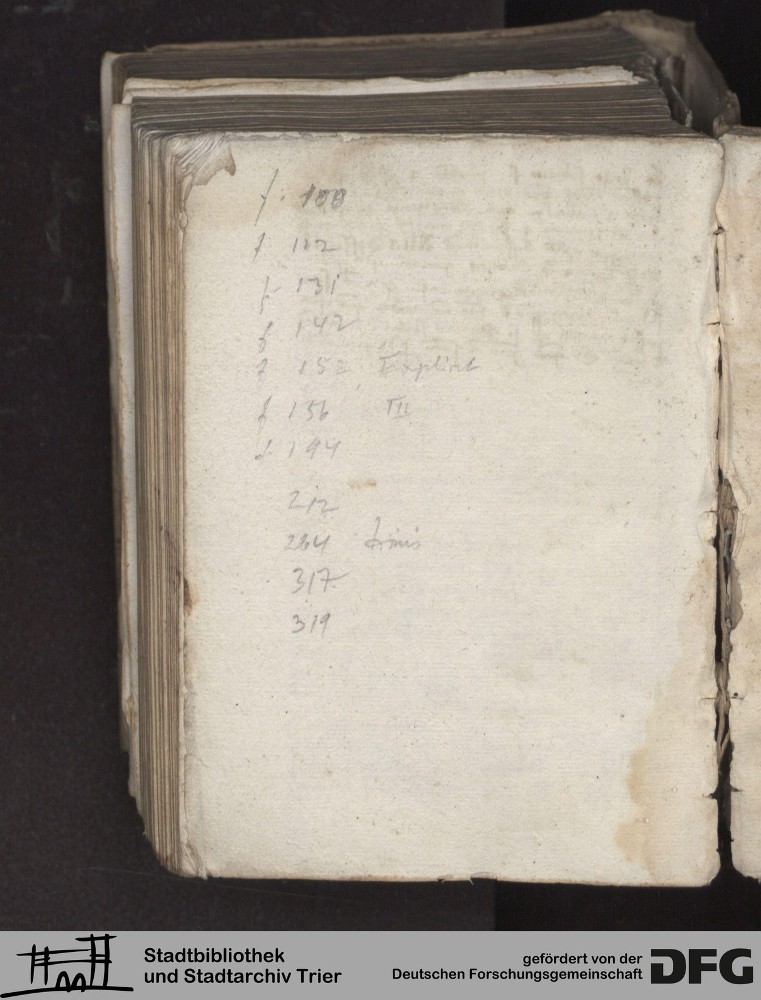 f. 100
f 112
f 131
f 142
f 152 Explicit
f 156 III
f 194
212
264 finis
317
319
Stadtbibliothek
und Stadtarchiv Trier
gefördert von der
Deutschen Forschungsgemeinschaft
DFG